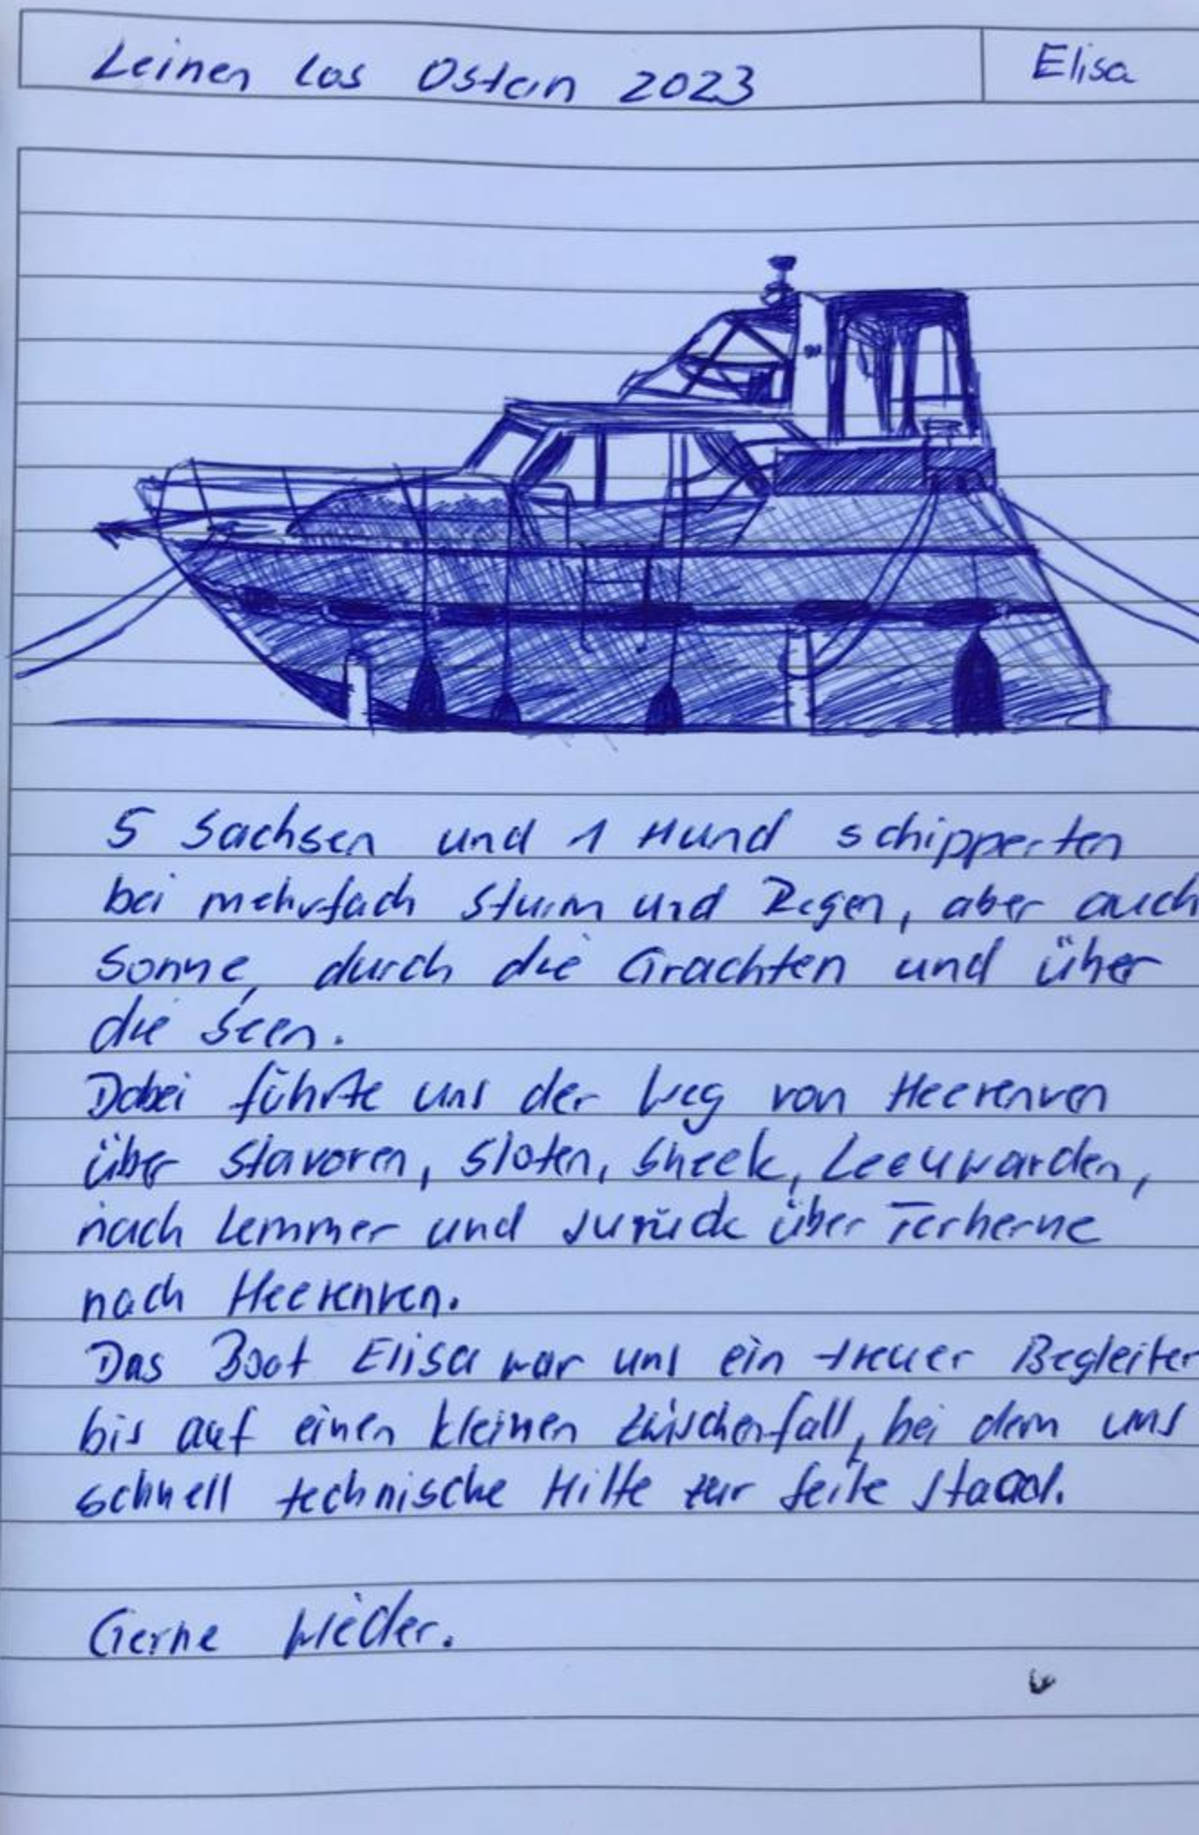 Leinen los Ostern 2023
Elisa
5 Sachsen und 1 Hund schipperten
bei mehrfach Sturm und Regen, aber auch
Sonne, durch die Grachten und über
die Seen.
Dabei führte uns der Weg von Heerenven
über Stavoren, Sloten, Sneek, Leeuwarden,
nach Lemmer und zurück über Terherne
nach Heerenven.
Das Boot Elisa war uns ein treuer Begleiter
bis auf einen kleinen Zwischenfall, bei dem uns
schnell technische Hilfe zur Seite stand.
Gerne wieder.